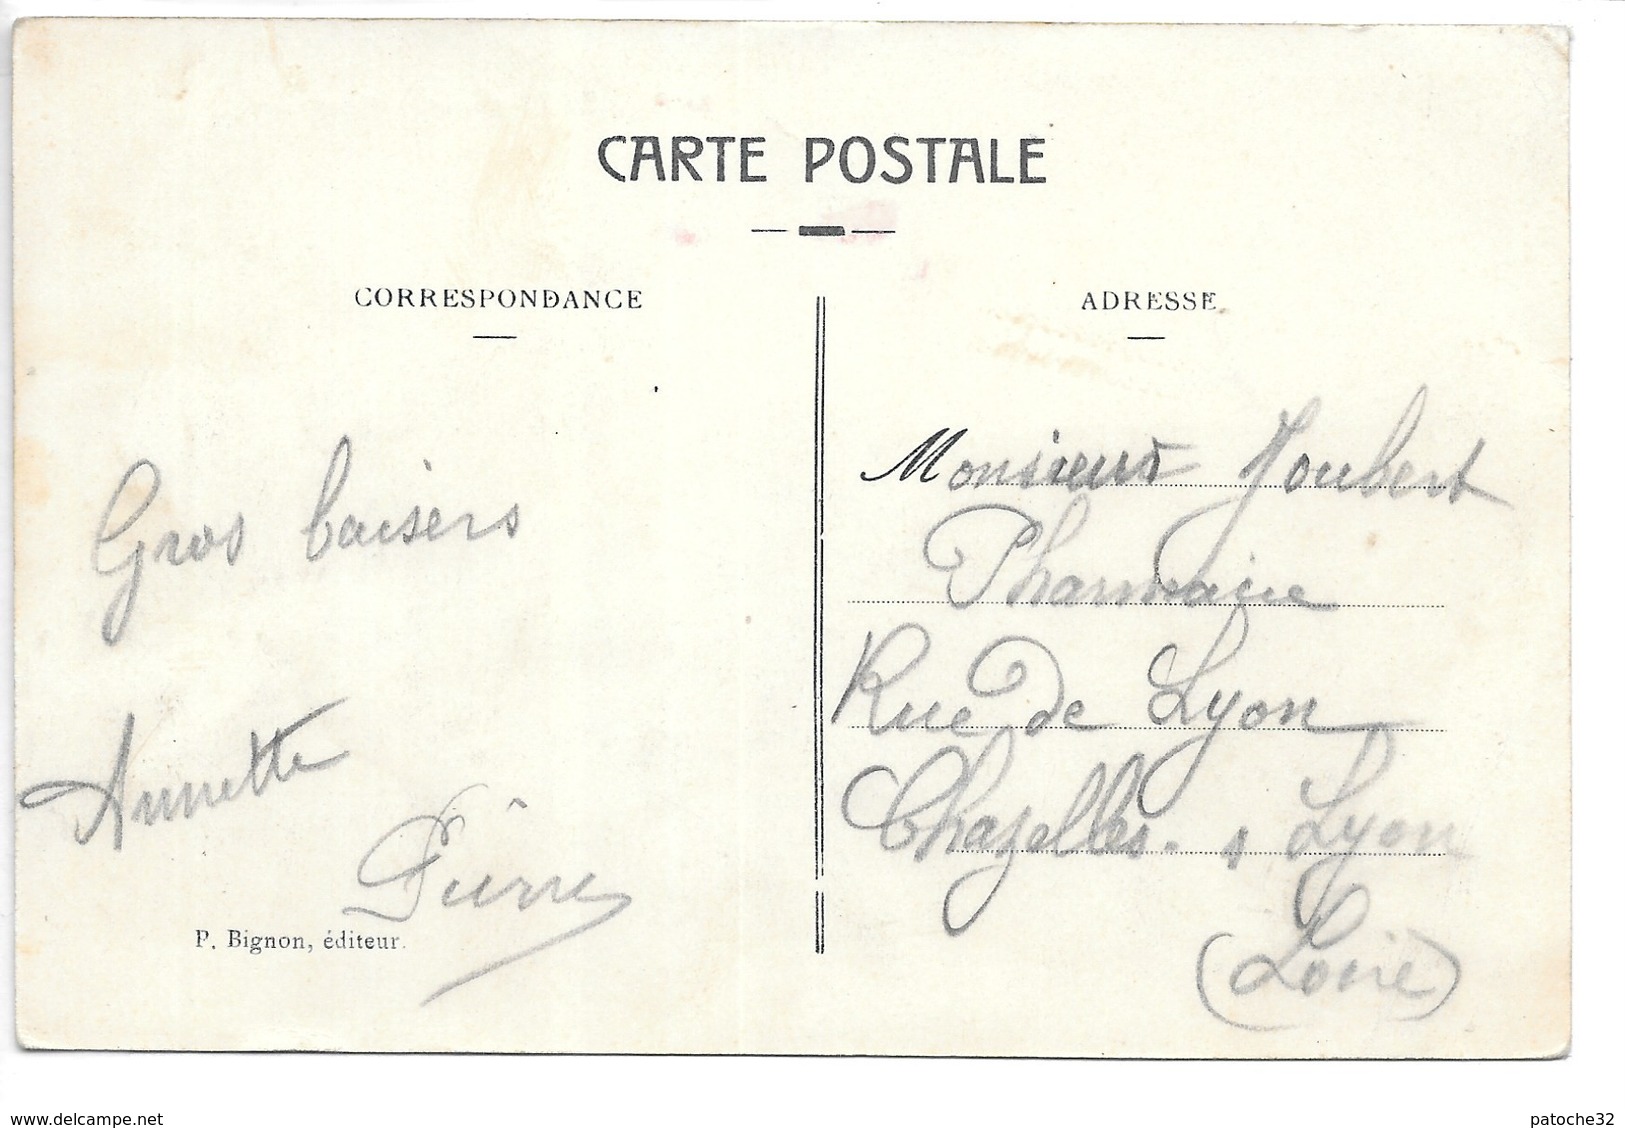 CARTE POSTALE
CORRESPONDANCE
Gros baisers
Annette
Pierre
P. Bignon, éditeur.
ADRESSE
Monsieur Joubert
Pharmacie
Rue de Lyon
Chazelles. s Lyon
(Loire)
www.delcampe.net
patoche32